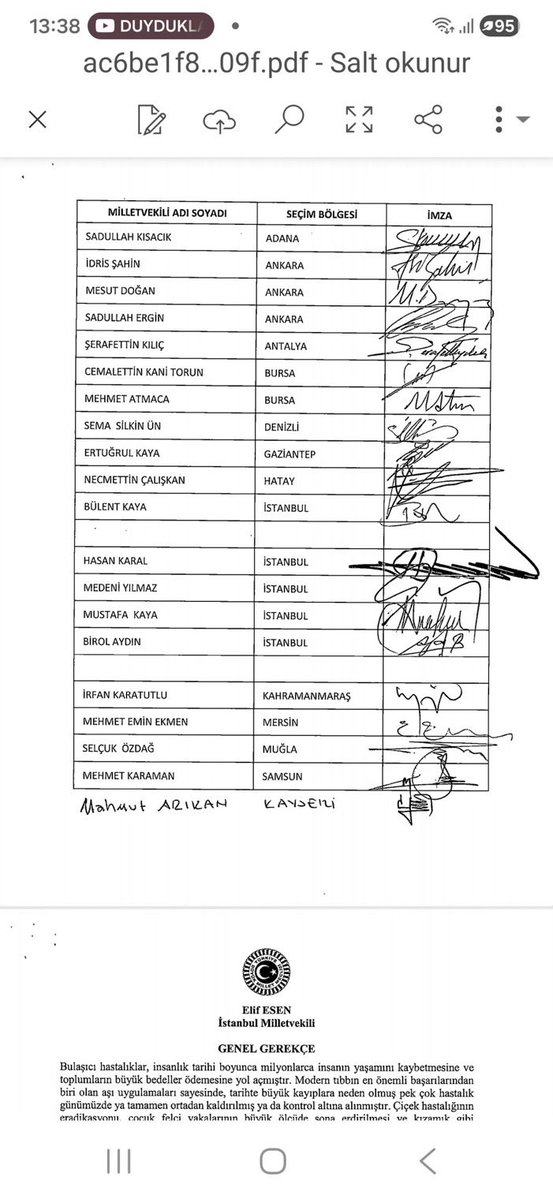 13:38 DUYDUKLA 95
ac6be1f8...09f.pdf - Salt okunur
MİLLETVEKİLİ ADI SOYADI SEÇİM BÖLGESİ İMZA
SADULLAH KISACIK ADANA
İDRİS ŞAHİN ANKARA
MESUT DOĞAN ANKARA
SADULLAH ERGİN ANKARA
ŞERAFETTİN KILIÇ ANTALYA
CEMALETTİN KANİ TORUN BURSA
MEHMET ATMACA BURSA
SEMA SİLKİN ÜN DENİZLİ
ERTUĞRUL KAYA GAZİANTEP
NECMETTİN ÇALIŞKAN HATAY
BÜLENT KAYA İSTANBUL
HASAN KARAL İSTANBUL
MEDENİ YILMAZ İSTANBUL
MUSTAFA KAYA İSTANBUL
BİROL AYDIN İSTANBUL
İRFAN KARATUTLU KAHRAMANMARAŞ
MEHMET EMİN EKMEN MERSİN
SELÇUK ÖZDAĞ MUĞLA
MEHMET KARAMAN SAMSUN
Mahmut ARIKAN KAYSERİ
Elif ESEN
İstanbul Milletvekili
GENEL GEREKÇE
Bulaşıcı hastalıklar, insanlık tarihi boyunca milyonlarca insanın yaşamını kaybetmesine ve
toplumların büyük bedeller ödemesine yol açmıştır. Modern tıbbın en önemli başarılarından
biri olan aşı uygulamaları sayesinde, tarihte büyük kayıplara neden olmuş pek çok hastalık
günümüzde ya tamamen ortadan kaldırılmış ya da kontrol altına alınmıştır. Çiçek hastalığının
eradikasyonu, çocuk felci vakalarının büyük ölçüde sona erdirilmesi ve kızamık gibi